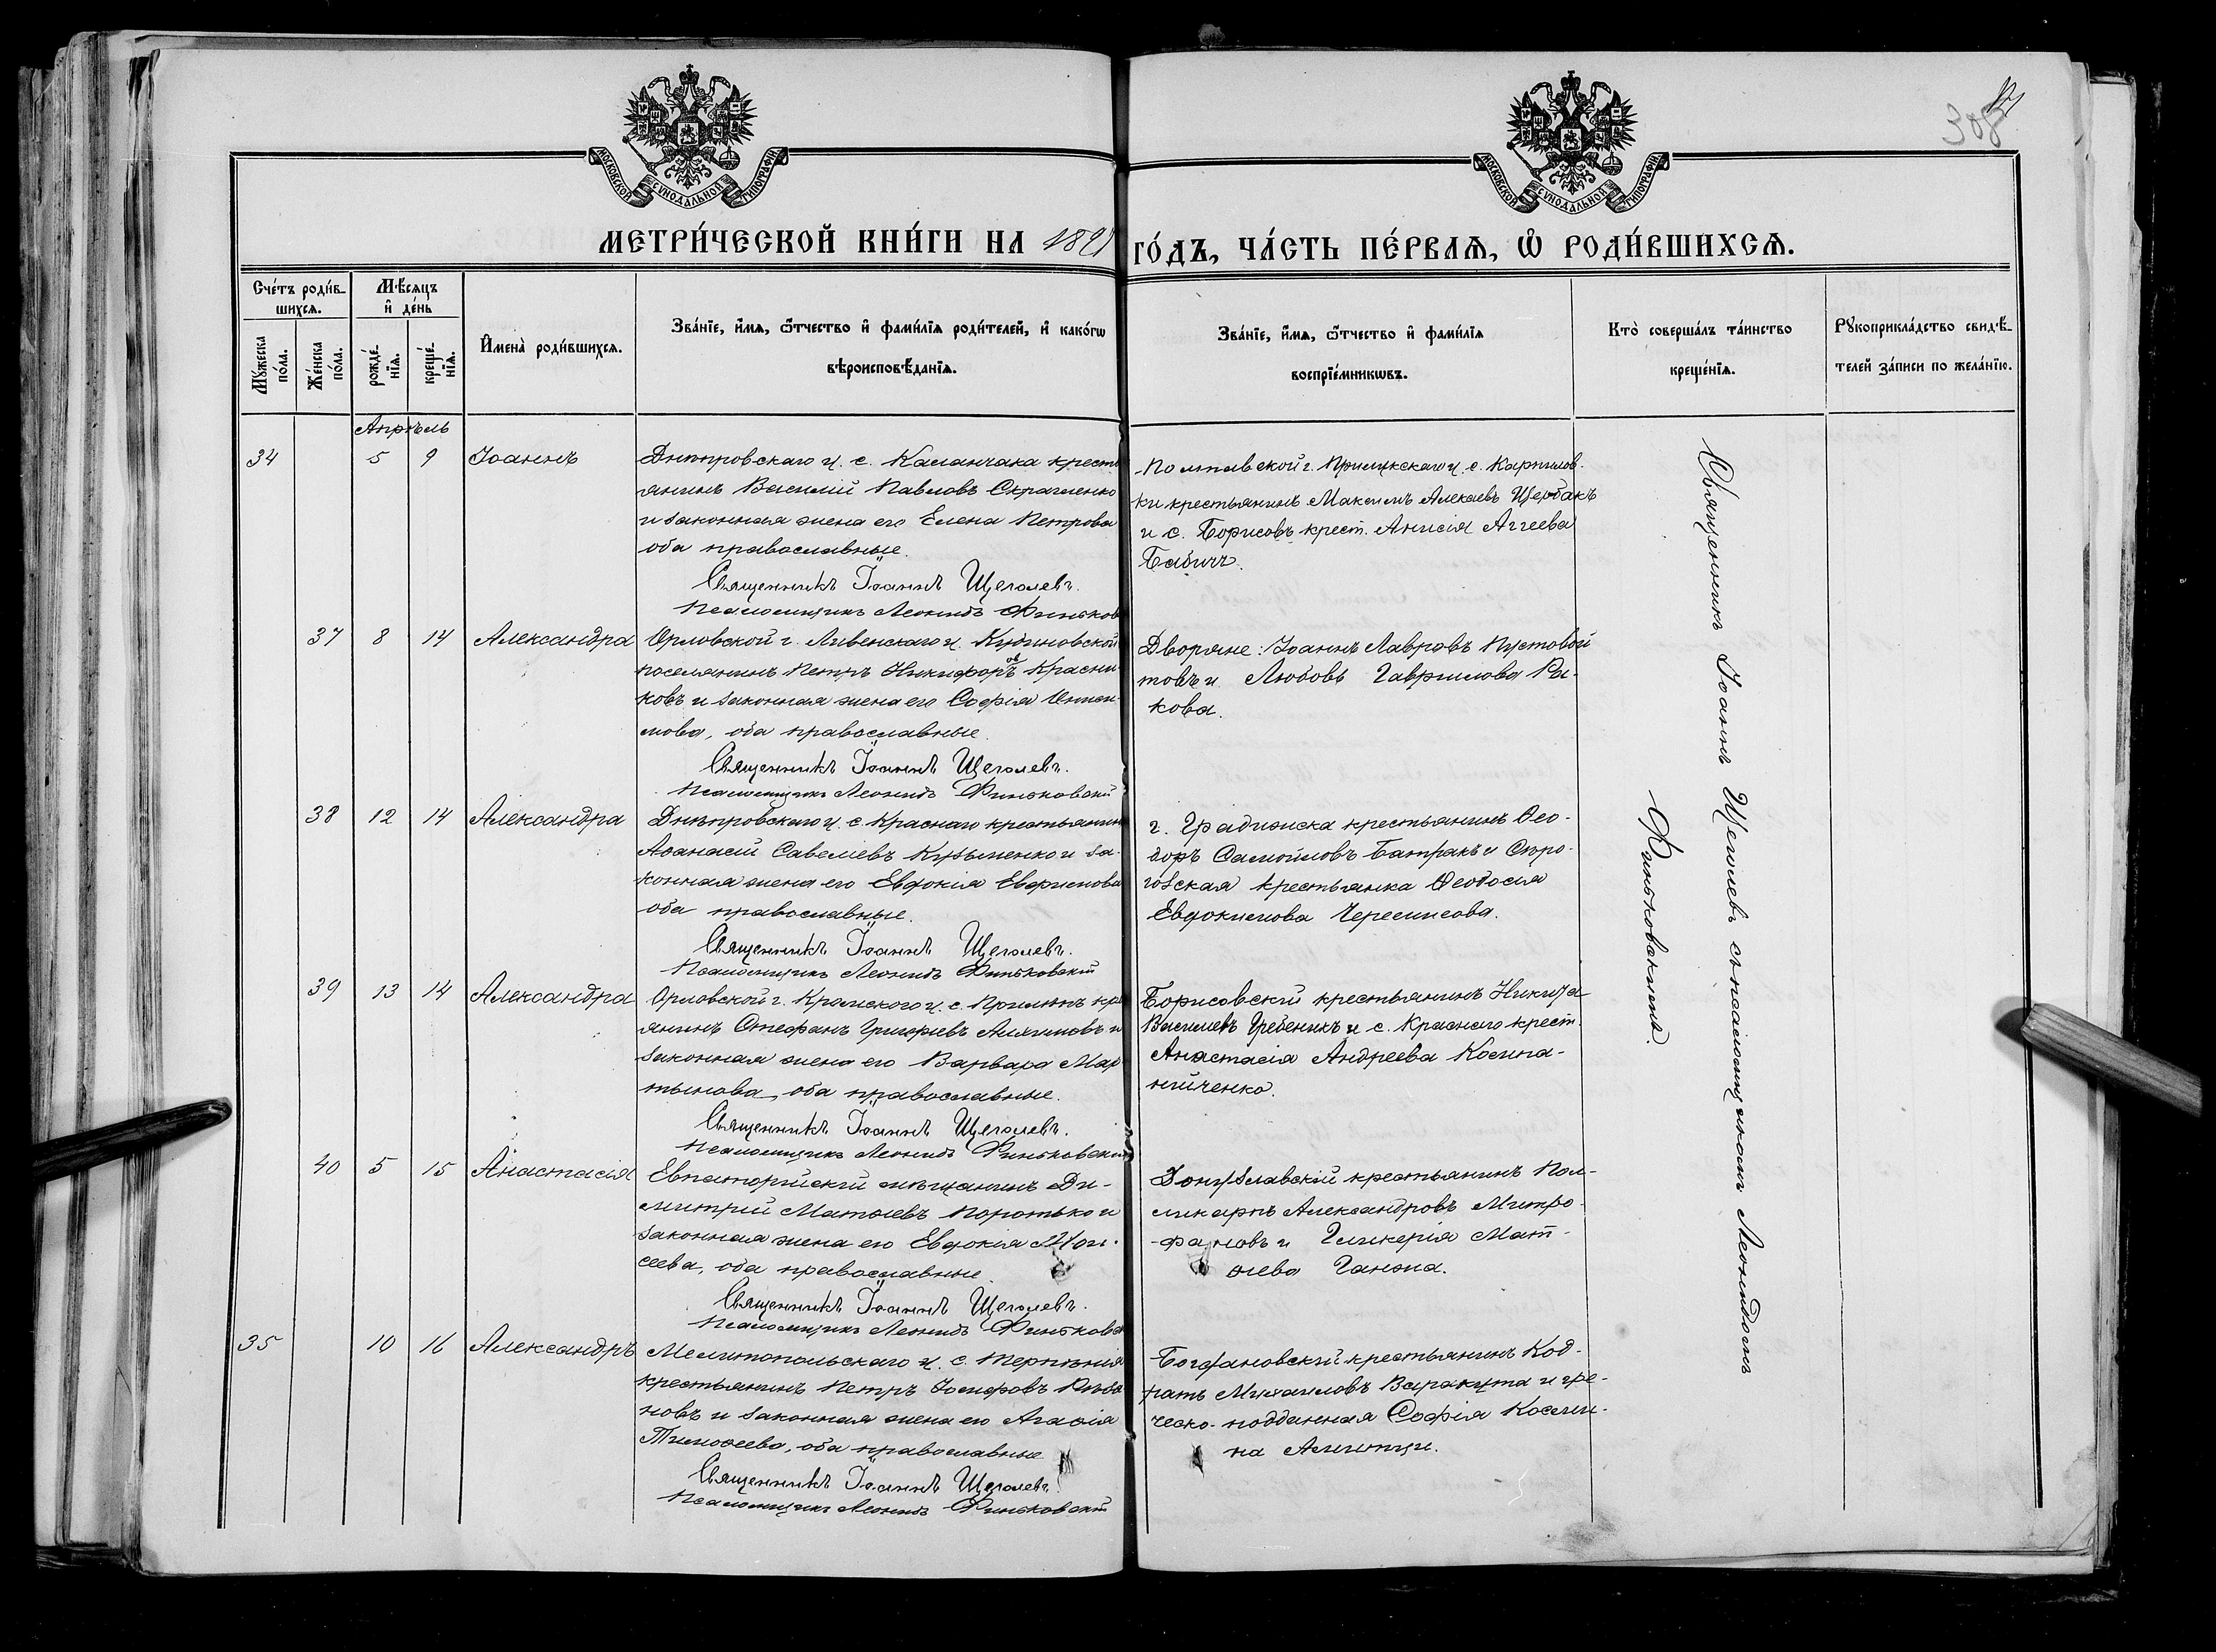 308
МОСКОВСКОЙ СУНОДАЛЬНОЙ ТИПОГРАФІИ
МОСКОВСКОЙ СУНОДАЛЬНОЙ ТИПОГРАФІИ
МЕТРИ́ЧЕСКОЙ КНИ́ГИ НА 1891 ГО́ДЪ, ЧА́СТЬ ПЕ́РВАѦ, Ѡ҆ РОДИ́ВШИХСѦ.
Сче́тъ роди́в-
шихсѧ.
Мꙋ́жеска по́ла.
Же́нска по́ла.
Мѣ́сѧцъ
и҆ де́нь
рожде́-
нїѧ.
креще́-
нїѧ.
И҆мена̀ роди́вшихсѧ.
Зва́нїе, и҆́мѧ, ѻ҆́тчество и҆ фами́лїѧ роди́телей, и҆ како́гѡ
вѣроисповѣ́данїѧ.
Зва́нїе, и҆́мѧ, ѻ҆́тчество и҆ фами́лїѧ
воспрїе́мникѡвъ.
Кто̀ соверша́лъ та́инство
креще́нїѧ.
Рꙋкоприкла́дство свидѣ́-
телей за́писи по жела́нїю.
Апрѣль
34 5 9 Іоаннъ
Днѣпровскаго у. с. Каланчака кресть
янинъ Василій Павловъ
и законная жена его Елена Петрова
оба православные.
Священникъ Іоаннъ Щеголевъ.
Псаломщикъ Леонидъ Финьков
Полтавской г. Прилукскаго у. с. Карпилов-
ки крестьянинъ Максимъ Алексѣевъ Щербакъ
и с. Борисовъ крест. Анисія Аггеева
Бабичъ.
37 8 14 Александра
Орловской г. Ливенскаго у. Кудиновской
поселянинъ Петръ Никифоровъ Красни
ковъ и законная жена его Софія
мова, оба православные.
Священникъ Іоаннъ Щеголевъ.
Псаломщикъ Леонидъ Финьковскій
Дворяне: Іоаннъ Лавровъ Пустовой
товъ и Любовь Гаврилова Ры-
кова.
38 12 14 Александра
Днѣпровскаго у. с. Краснаго крестьянин
Аѳанасій Савеліевъ Кузьменко и за-
конная жена его Евдокія Ефремова
оба православные.
Священникъ Іоаннъ Щеголевъ.
Псаломщикъ Леонидъ Финьковскій
г. Градижска крестьянинъ Ѳео-
доръ Самойловъ Батракъ и Стро-
говская крестьянка Ѳеодосія
Евдокимова Черемисова.
39 13 14 Александра
Орловской г. Кромскаго у. с. кре
янинъ Стефанъ Григорьевъ и
законная жена его Варвара Мар
тынова, оба православные.
Священникъ Іоаннъ Щеголевъ.
Псаломщикъ Леонидъ Финьковскій
Борисовскій крестьянинъ Никита
Васильевъ Гребеникъ и с. Краснаго крест.
Анастасія Андреева Коспа-
ниченко.
40 5 15 Анастасія
Евпаторійскій мѣщанинъ Ди-
митрій Матѳіевъ Поротько и
законная жена его Евдокія Мои-
сеева, оба православные
Священникъ Іоаннъ Щеголевъ.
Псаломщикъ Леонидъ Финьковск
Донузлавскій крестьянинъ Пол-
икарпъ Александровъ Митро-
фановъ и Гликерія Мат-
ѳіева Ганжа.
35 10 16 Александръ
Мелитопольскаго у. с. Терпѣнія
крестьянинъ Петръ Іосифовъ
новъ и законная жена его Агаѳія
Тимоѳеева, оба православные
Священникъ Іоаннъ Щеголевъ.
Псаломщикъ Леонидъ Финьковскій
Богдановскій крестьянинъ Код-
ратъ Михаиловъ Варакута и гре-
ческо-подданная Софія Косми-
на
Священникъ Іоаннъ Щеголевъ съ псаломщикомъ Леонидомъ
Финьковскимъ.